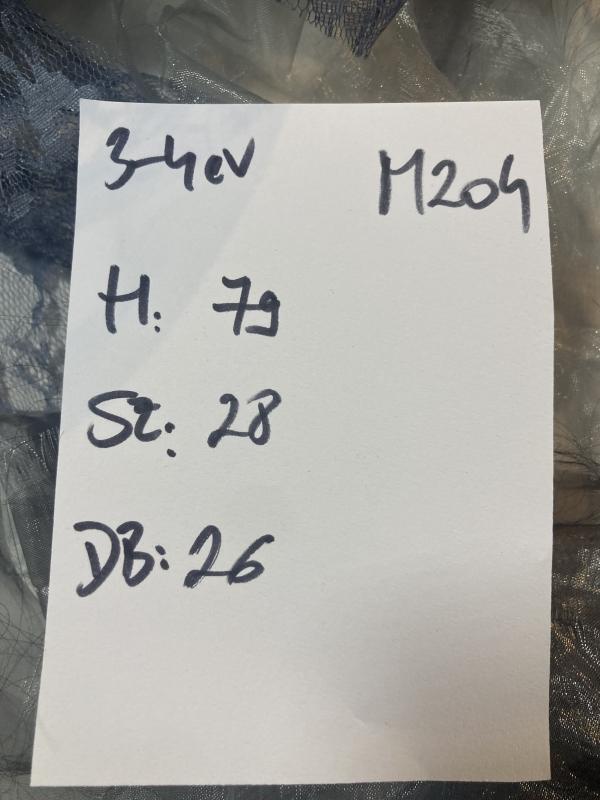 3-4 ev M204
H: 79
Sz: 28
DB: 26